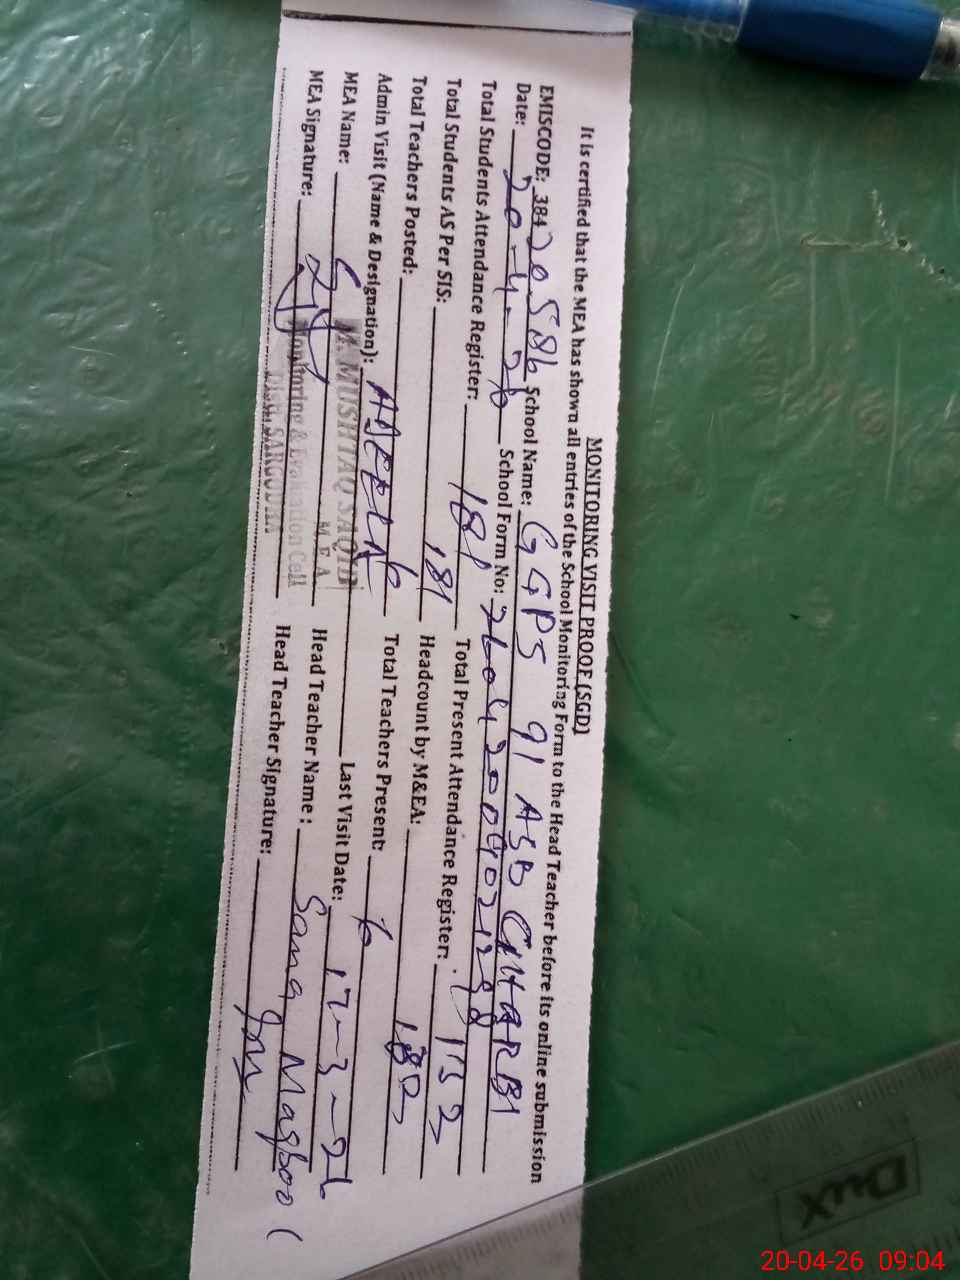 MONITORING VISIT PROOF (SGD)
It is certified that the MEA has shown all entries of the School Monitoring Form to the Head Teacher before its online submission
EMISCODE: 38420586 School Name: GGPS 91 ASB GHARBI
Date: 20-4-26 School Form No:
Total Students Attendance Register: 181 Total Present Attendance Register: 132
Total Students AS Per SIS: 181 Headcount by M&EA: 132
Total Teachers Posted: 6 Total Teachers Present: 6
Admin Visit (Name & Designation): ADEELA
MEA Name: M. MUSHTAQ SAQIB Last Visit Date: 17-3-26
M E A
MEA Signature: Head Teacher Name: Sana Maqbool
Monitoring & Evaluation Cell
Distt. SARGODHA
Head Teacher Signature:
DUX
20-04-26 09:04